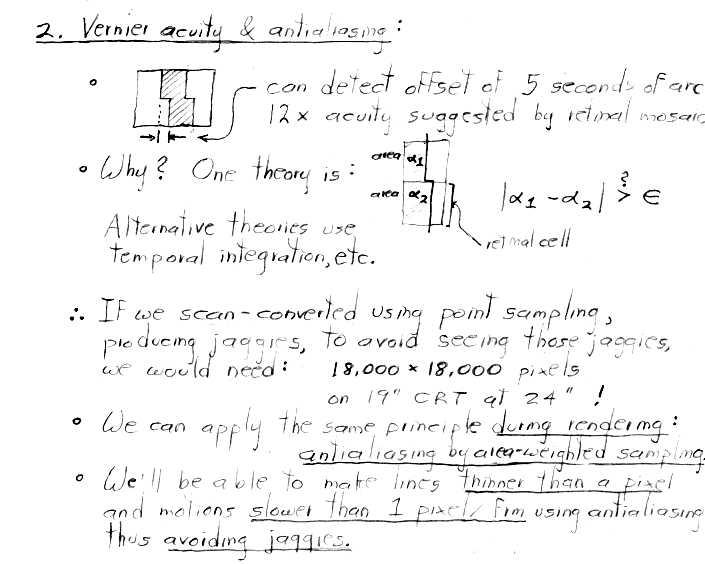 2. Vernier acuity & antialiasing:
• can detect offset of 5 seconds of arc
12x acuity suggested by retinal mosaic
• Why? One theory is:
area α1
area α2
|α1 - α2| ?> ∈
retinal cell
Alternative theories use
temporal integration, etc.
∴ If we scan-converted using point sampling,
producing jaggies, to avoid seeing those jaggies,
we would need: 18,000 × 18,000 pixels
on 19" CRT at 24" !
• We can apply the same principle during rendering:
antialiasing by area-weighted sampling.
• We'll be able to make lines thinner than a pixel
and motions slower than 1 pixel/frm using antialiasing
thus avoiding jaggies.